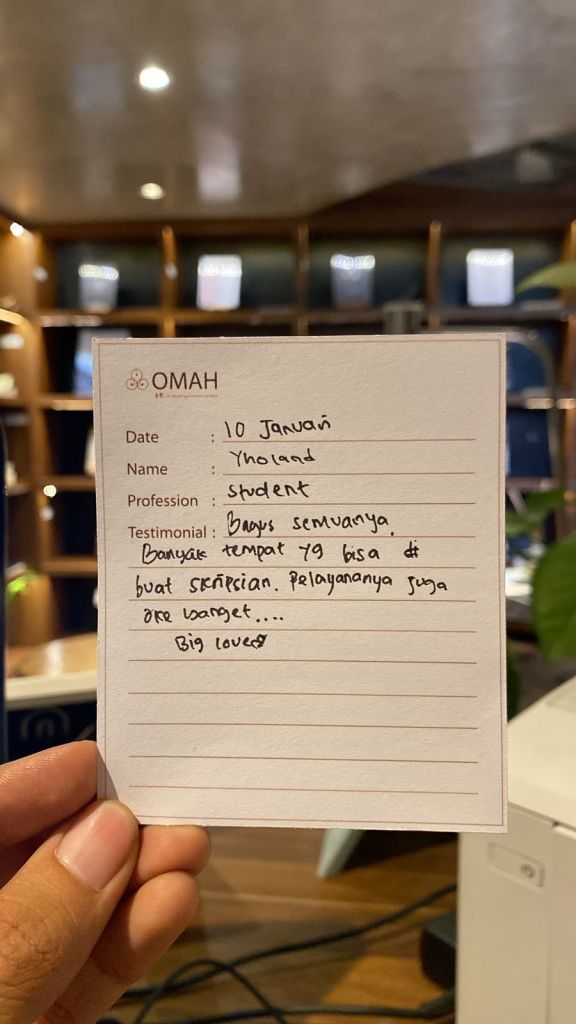 OMAH
Date : 10 Januari
Name : Yholand
Profession : Student
Testimonial : Bagus semuanya.
Banyak tempat yg bisa di
buat skripsian. Pelayananya juga
oke banget....
Big love